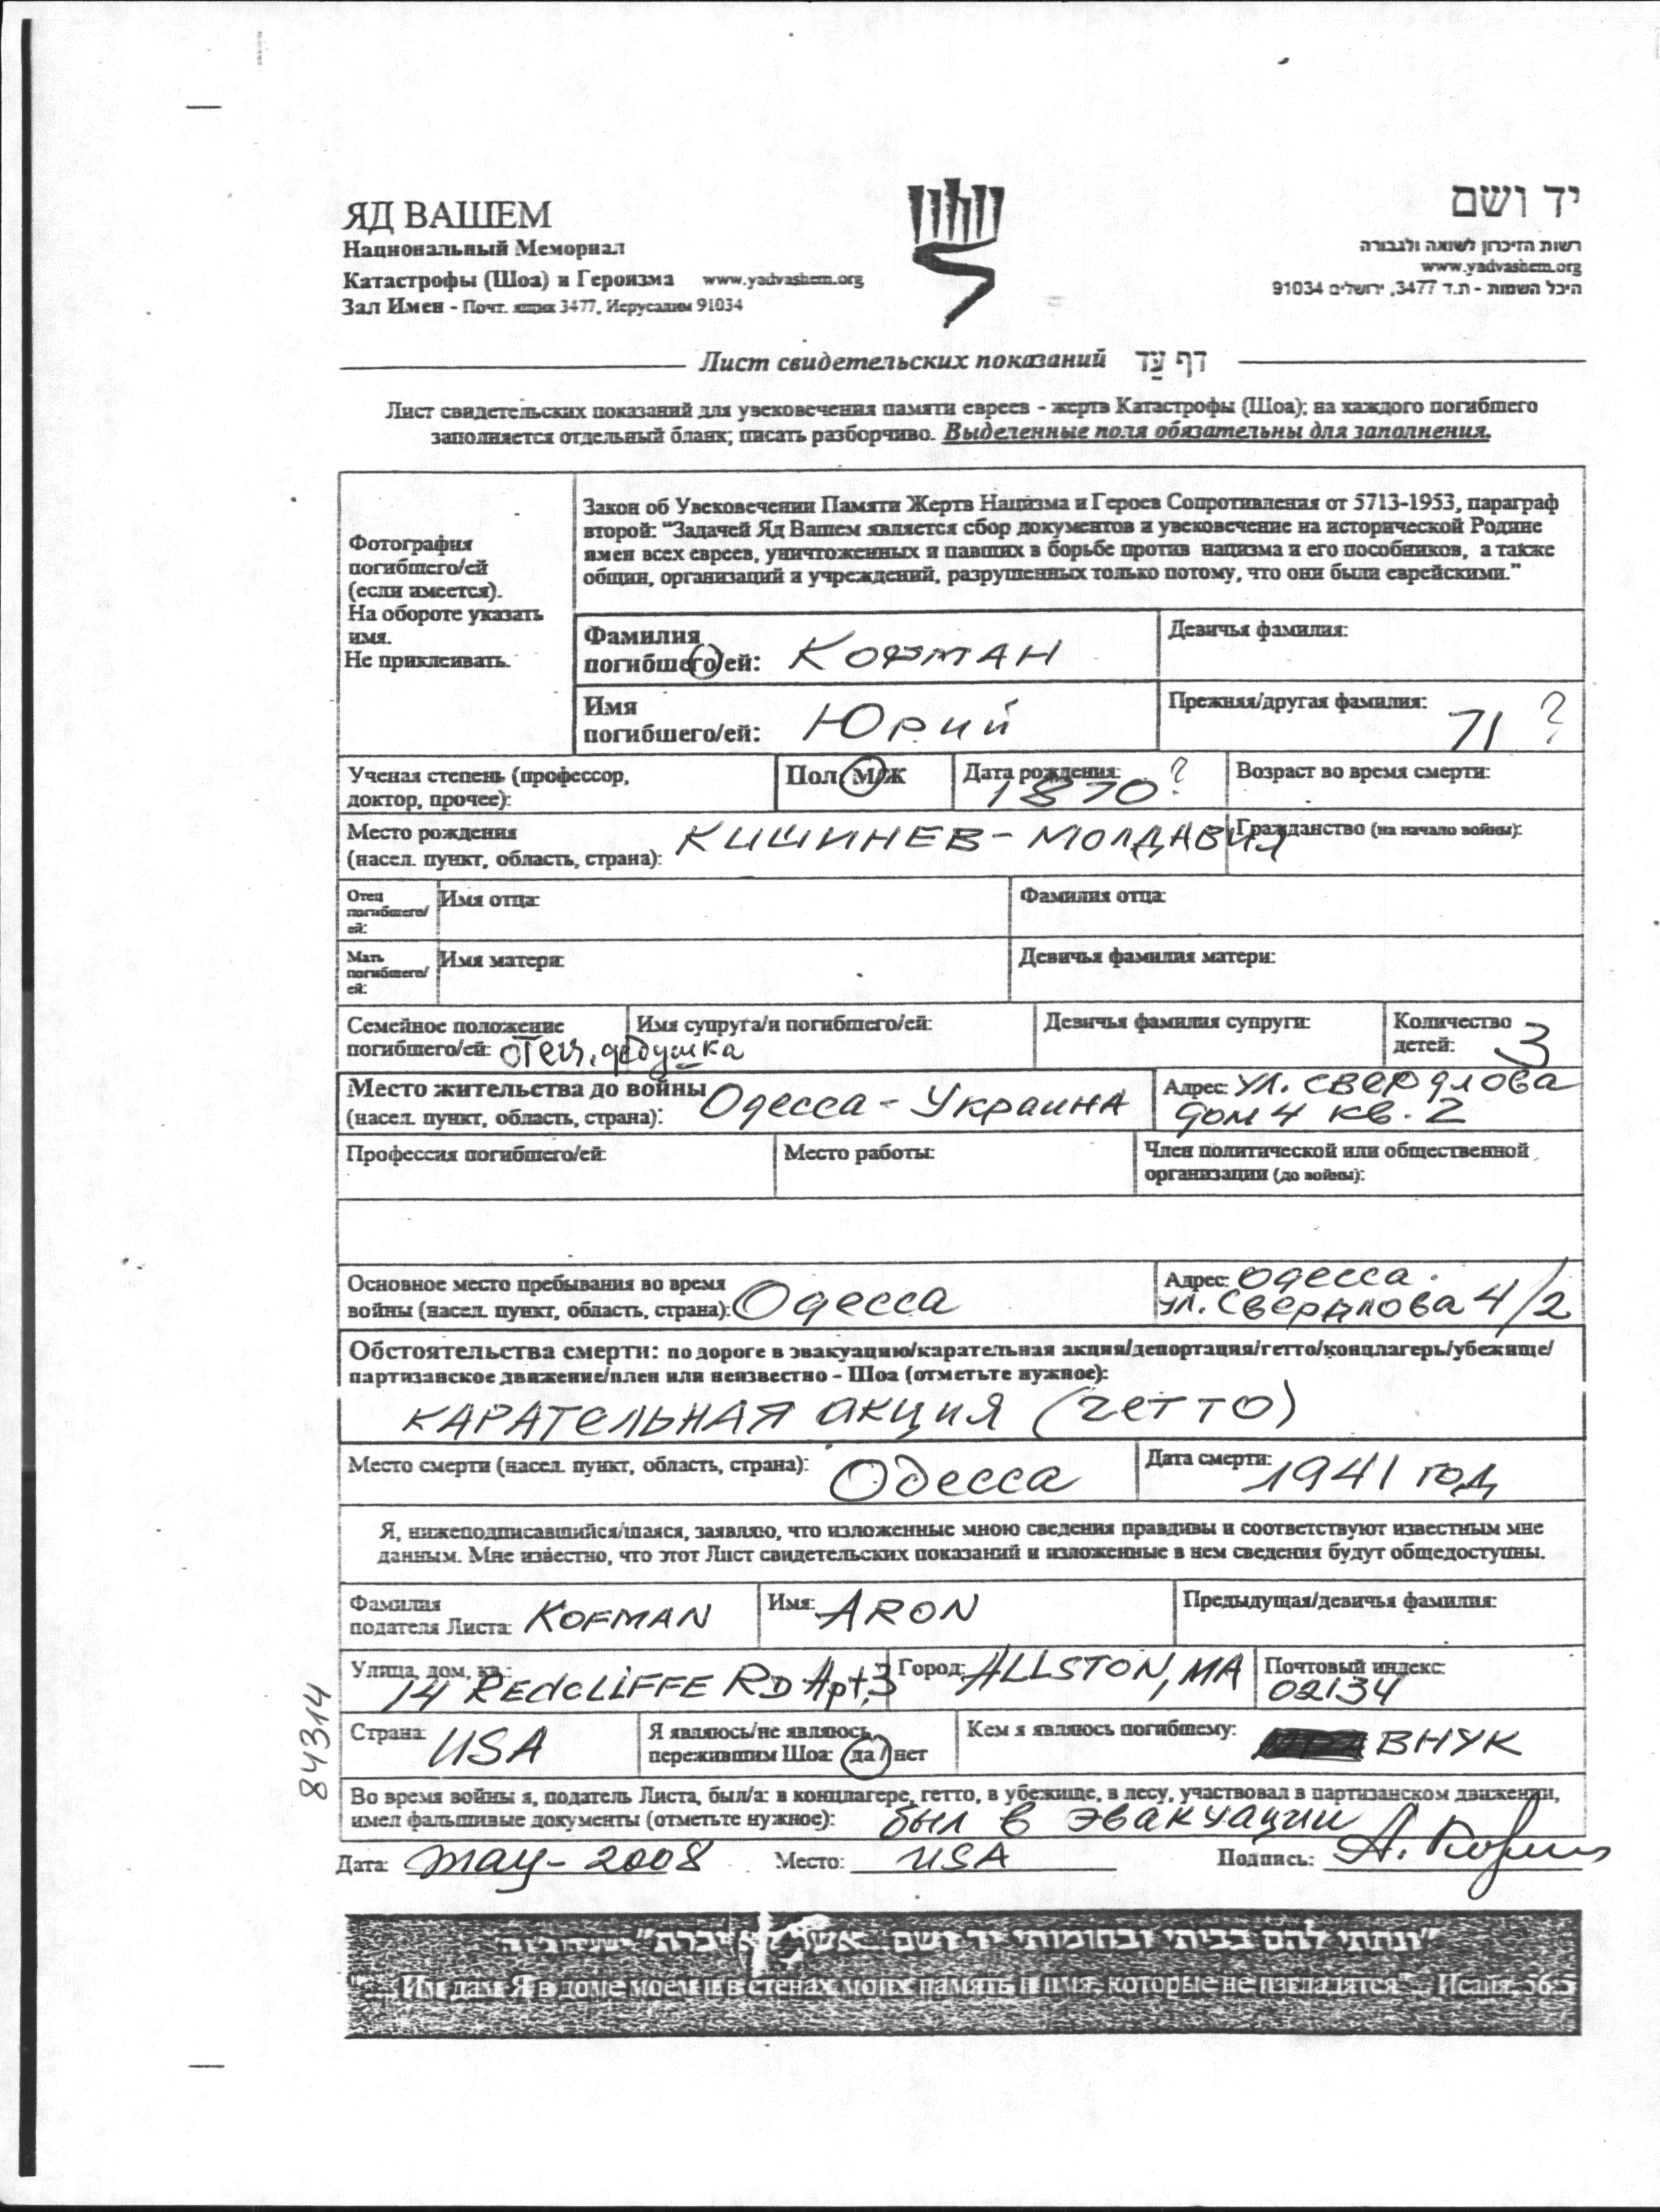 ЯД ВАШЕМ
Национальный Мемориал
Катастрофы (Шоа) и Героизма www.yadvashem.org
Зал Имен - Почт. ящик 3477, Иерусалим 91034
יד ושם
רשות הזיכרון לשואה ולגבורה
www.yadvashem.org
היכל השמות - ת.ד 3477, ירושלים 91034
Лист свидетельских показаний דף עֵד
Лист свидетельских показаний для увековечения памяти евреев - жертв Катастрофы (Шоа); на каждого погибшего
заполняется отдельный бланк; писать разборчиво. Выделенные поля обязательны для заполнения.
Фотография
погибшего/ей
(если имеется).
На обороте указать
имя.
Не приклеивать.
Закон об Увековечении Памяти Жертв Нацизма и Героев Сопротивления от 5713-1953, параграф
второй: “Задачей Яд Вашем является сбор документов и увековечение на исторической Родине
имен всех евреев, уничтоженных и павших в борьбе против нацизма и его пособников, а также
общин, организаций и учреждений, разрушенных только потому, что они были еврейскими.”
Фамилия
погибшего/ей: КОФМАН
Девичья фамилия:
Имя
погибшего/ей: Юрий
Прежняя/другая фамилия:
71 ?
Ученая степень (профессор,
доктор, прочее):
Пол: М/Ж
Дата рождения:
1870 ?
Возраст во время смерти:
Место рождения
(насел. пункт, область, страна): КИШИНЕВ - МОЛДАВИЯ
Гражданство (на начало войны):
Отец
погибшего/
ей:
Имя отца:
Фамилия отца:
Мать
погибшего/
ей:
Имя матери:
Девичья фамилия матери:
Семейное положение
погибшего/ей: отец, дедушка
Имя супруга/и погибшего/ей:
Девичья фамилия супруги:
Количество
детей: 3
Место жительства до войны
(насел. пункт, область, страна): Одесса - Украина
Адрес: ул. Свердлова
дом 4 кв. 2
Профессия погибшего/ей:
Место работы:
Член политической или общественной
организации (до войны):
Основное место пребывания во время
войны (насел. пункт, область, страна): Одесса
Адрес: Одесса.
ул. Свердлова 4/2
Обстоятельства смерти: по дороге в эвакуацию/карательная акция/депортация/гетто/концлагерь/убежище/
партизанское движение/плен или неизвестно - Шоа (отметьте нужное):
КАРАТЕЛЬНАЯ акция (гетто)
Место смерти (насел. пункт, область, страна): Одесса
Дата смерти: 1941 год
Я, нижеподписавшийся/шаяся, заявляю, что изложенные мною сведения правдивы и соответствуют известным мне
данным. Мне известно, что этот Лист свидетельских показаний и изложенные в нем сведения будут общедоступны.
Фамилия
подателя Листа: KOFMAN
Имя: ARON
Предыдущая/девичья фамилия:
Улица, дом, кв.:
14 REDCLIFFE RD Apt,3
Город: ALLSTON, MA
Почтовый индекс:
02134
Страна: USA
Я являюсь/не являюсь
пережившим Шоа: да / нет
Кем я являюсь погибшему:
ВНУК
84314
Во время войны я, податель Листа, был/а: в концлагере, гетто, в убежище, в лесу, участвовал в партизанском движении,
имел фальшивые документы (отметьте нужное): был в эвакуации
Дата: may - 2008 Место: USA Подпись:
"ונתתי להם בביתי ובחומותי יד ושם... אשר לא יכרת" ישעיהו נו ה
"...Им дам Я в доме моем и в стенах моих память и имя, которые не изгладятся"... Исаия, 56:5